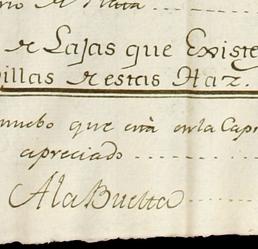 de Lajas que Existe
illas de estas Haz.
nuebo que está en la Capi
apreciado
A la Buelta